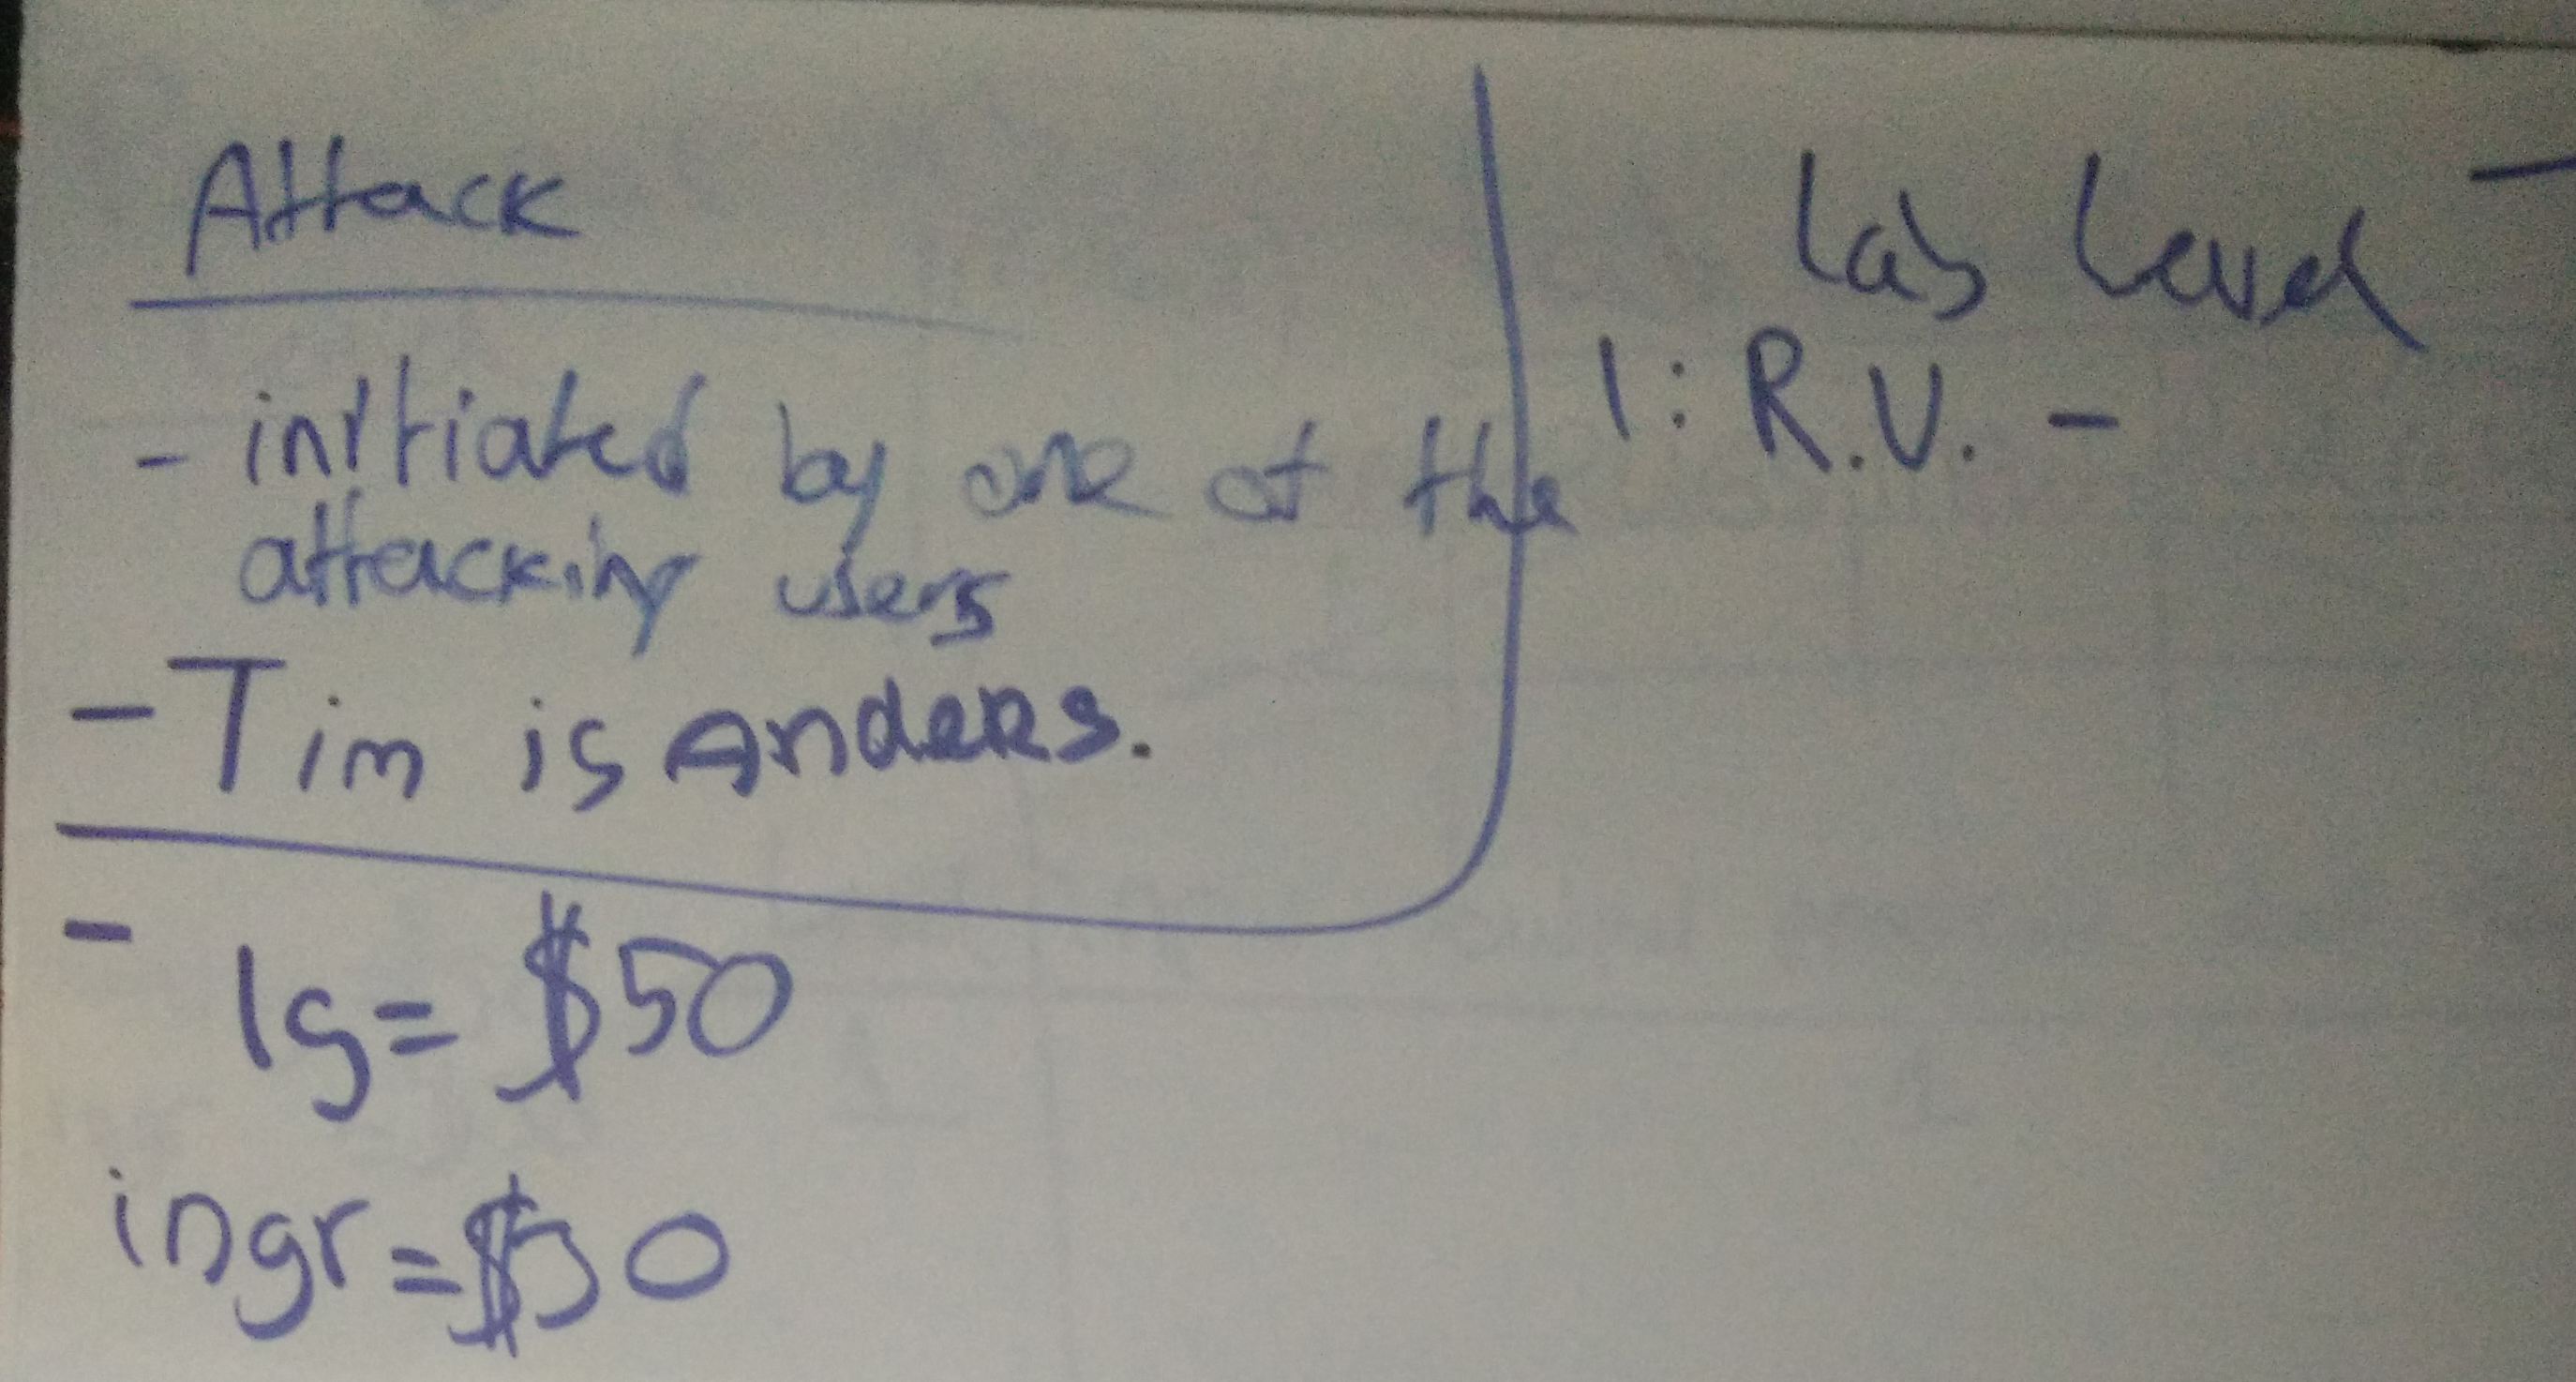 Attack
- initiated by one of the
attacking users
- Tim is Anders.
- 1g = $50
ingr = $30
Lab Level -
1: R.V. -